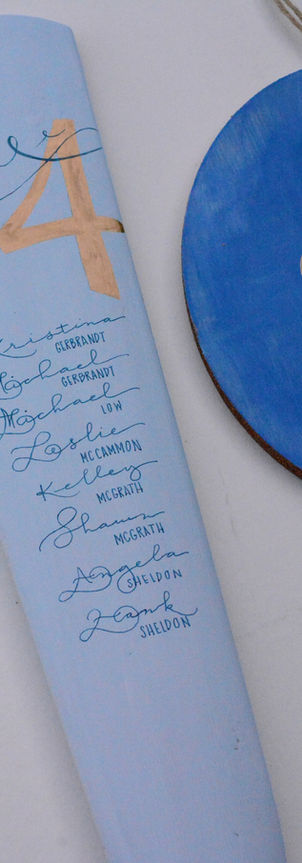 4
Kristina
GERBRANDT
Michael
GERBRANDT
Michael
LOW
Leslie
MCCAMMON
Kelley
MCGRATH
Shawn
MCGRATH
Angela
SHELDON
Hank
SHELDON